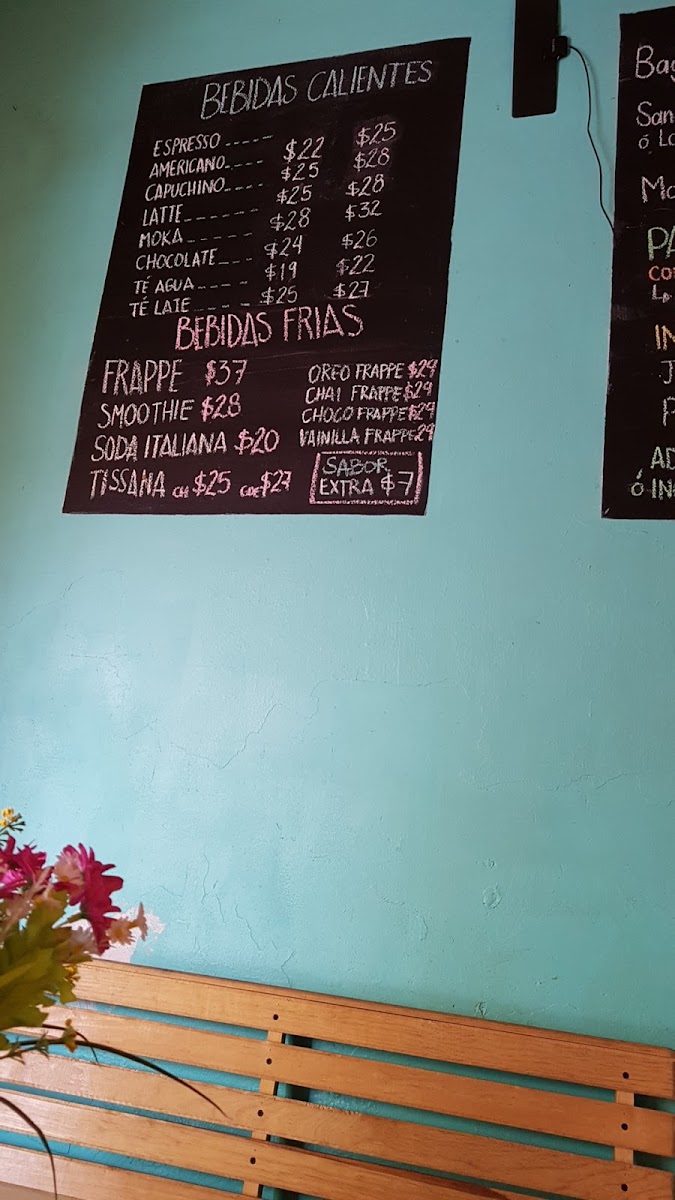 BEBIDAS CALIENTES
ESPRESSO -----
AMERICANO---- $22 $25
CAPUCHINO---- $25 $28
LATTE------ $25 $28
MOKA------ $28 $32
CHOCOLATE--- $24 $26
TÉ AGUA---- $19 $22
TÉ LATE---- $25 $27
BEBIDAS FRIAS
FRAPPE $37
SMOOTHIE $28
SODA ITALIANA $20
TISSANA CH $25 GDE $27
OREO FRAPPE $29
CHAI FRAPPE $29
CHOCO FRAPPE $29
VAINILLA FRAPPE 29
SABOR
EXTRA $7